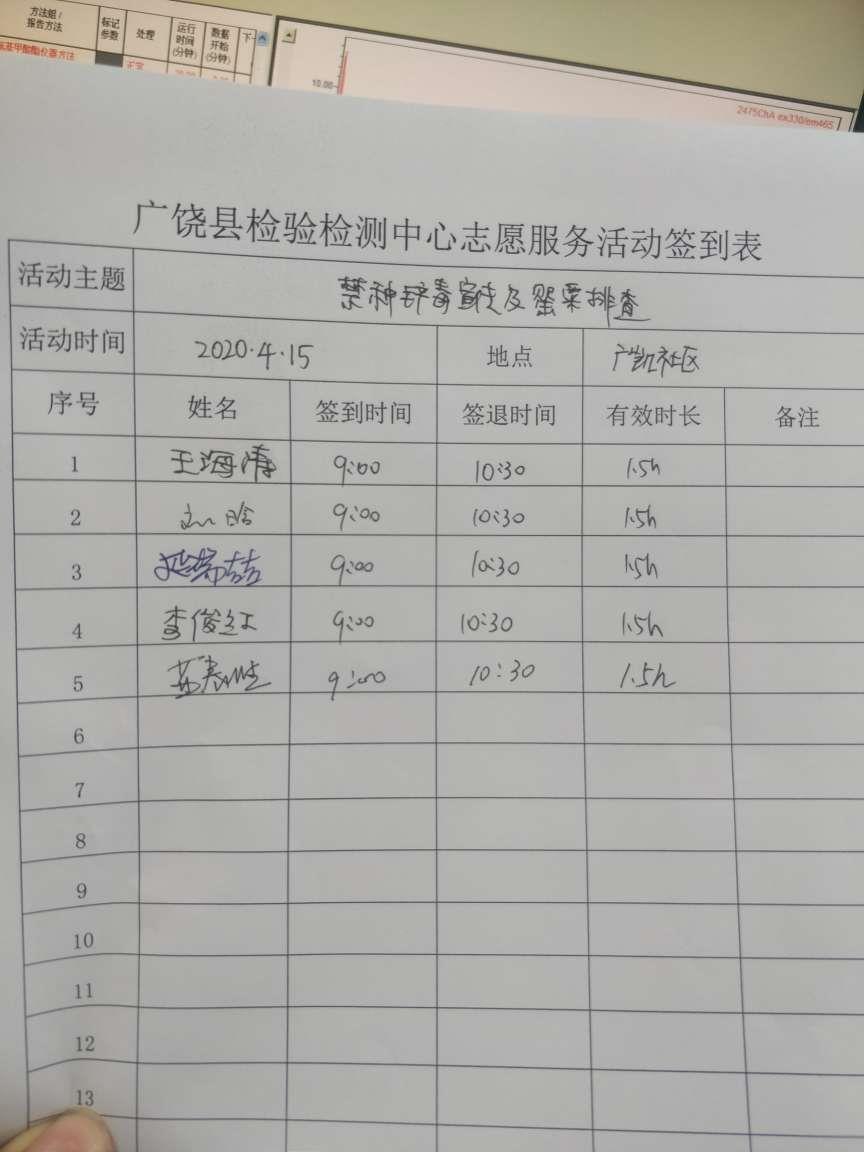 方法组/ 标记 处理 运行 数据 下
报告方法 参数 时间 开始
(分钟) (分钟)
正常
10.00
2475ChA ex330/em465
广饶县检验检测中心志愿服务活动签到表
活动主题 禁种铲毒宣传及罂粟排查
活动时间 2020.4.15 地点 广凯社区
序号 姓名 签到时间 签退时间 有效时长 备注
1 王海清 9:00 10:30 1.5h
2 刘晗 9:00 10:30 1.5h
3 9:00 10:30 1.5h
4 李俊红 9:00 10:30 1.5h
5 9:00 10:30 1.5h
6
7
8
9
10
11
12
13